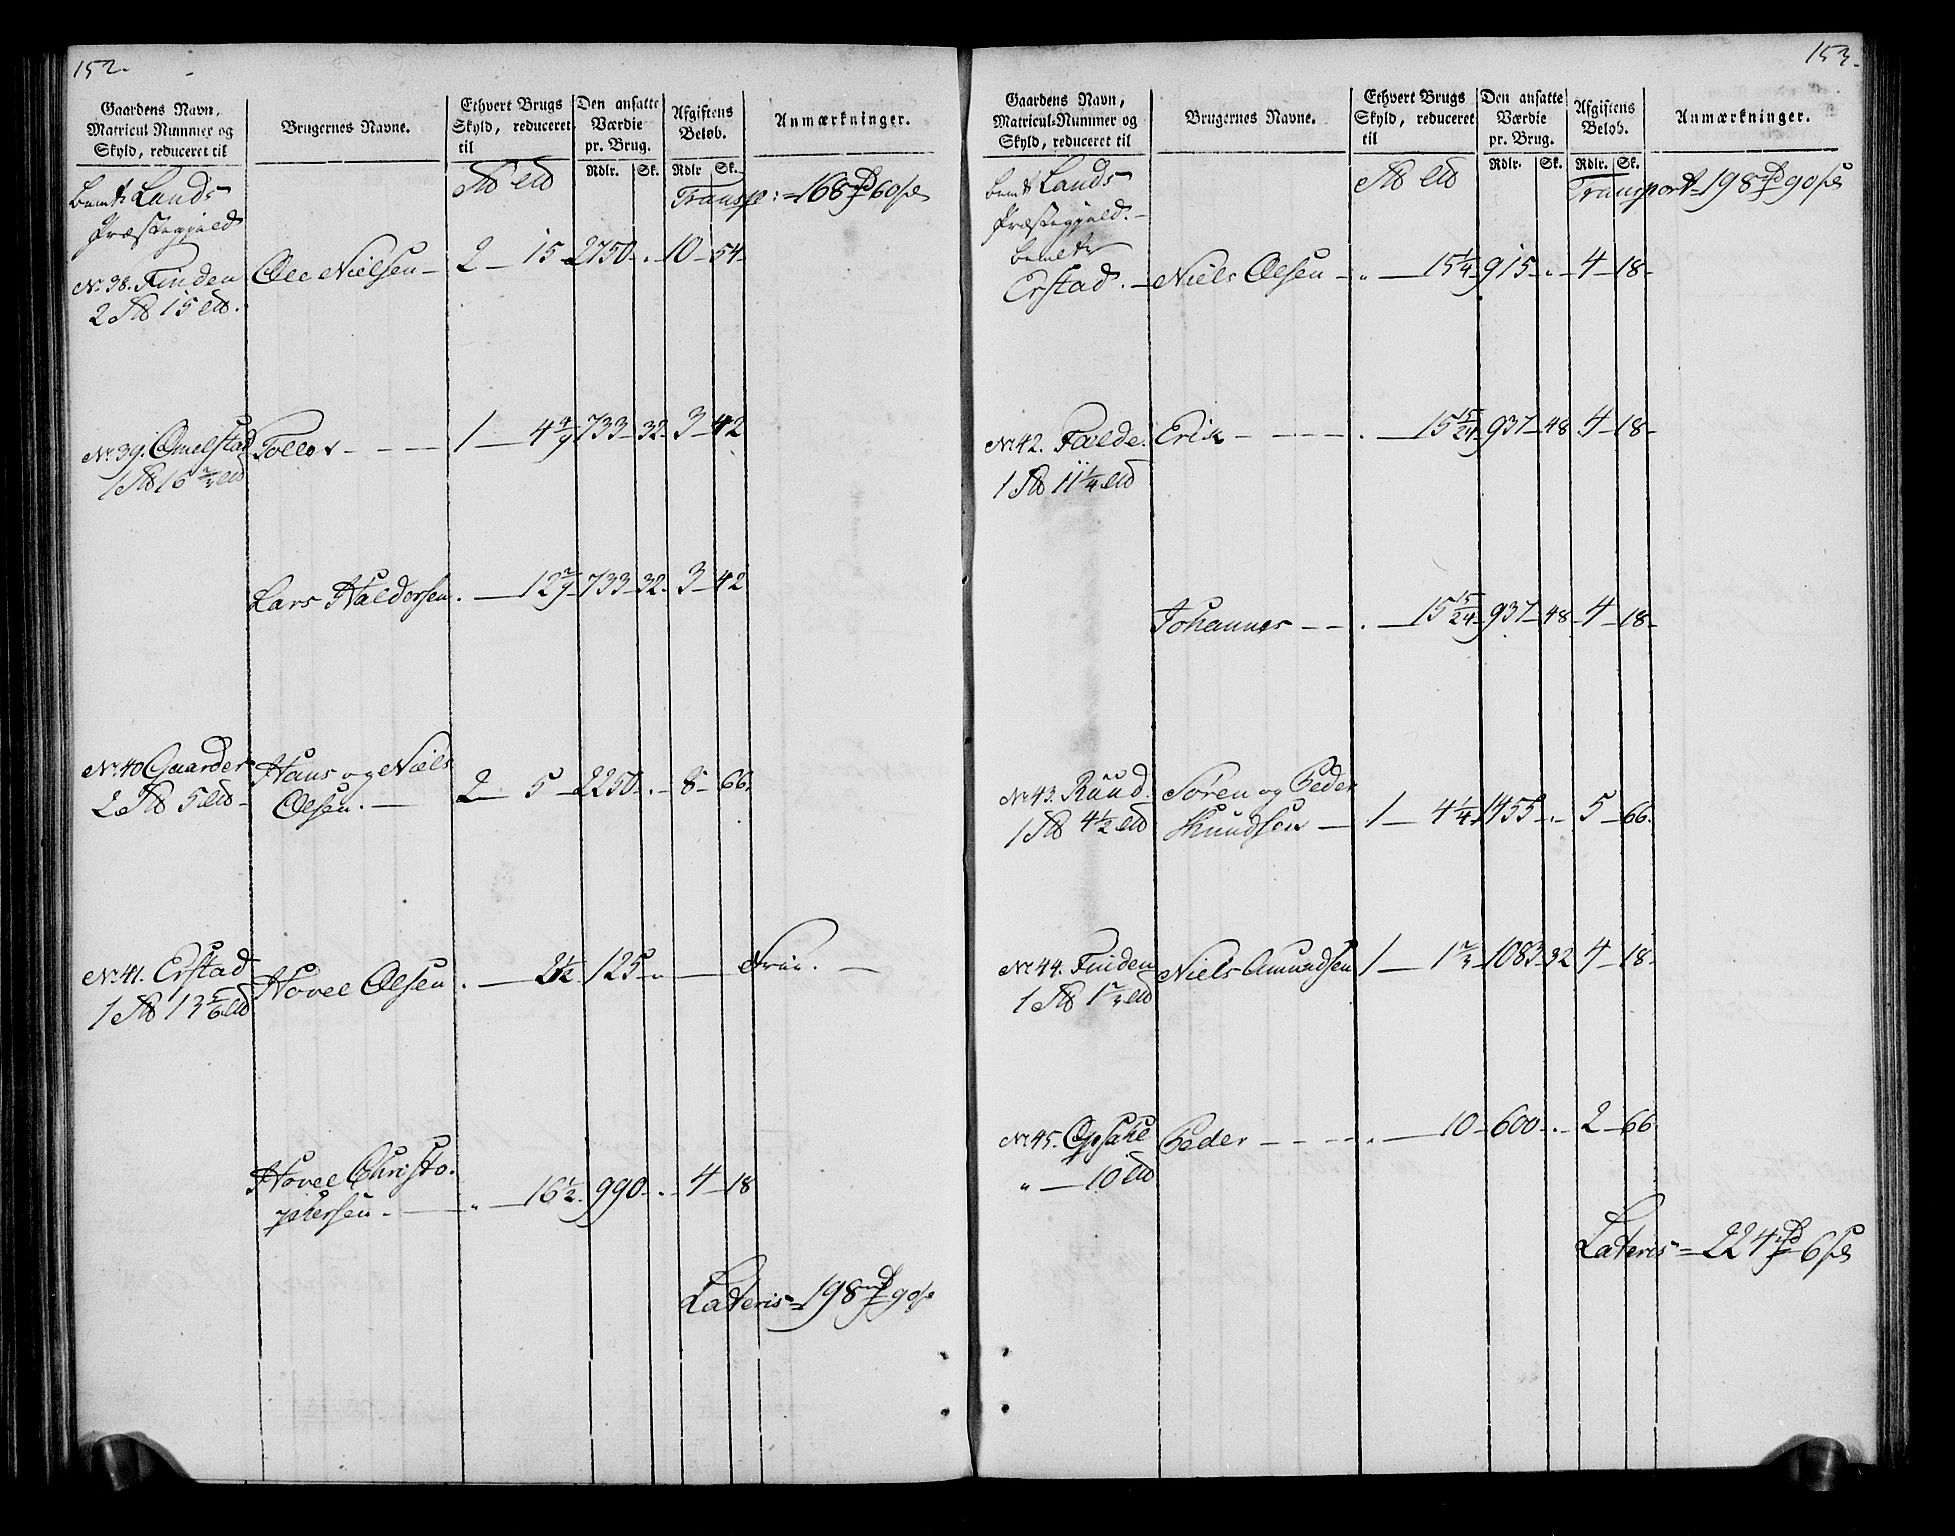 152.
Gaardens Navn,
Matricul Nummer og
Skyld, reduceret til
Brugernes Navne.
Ethvert Brugs
Skyld, reduceret
til
Den ansatte
Værdie
pr. Brug.
Afgiftens
Beløb.
Anmærkninger.
Rdlr. Sk. Rdlr Sk.
bemte Lands
Præstegjeld
Transp: = 168 rd 60 sk
No. 38. Finden Ole Nielsen 2 15 2750 - . - 10 - 54
2 15
No. 39. Omelstad Tollev 1 4 4/9 733 32 3 42
1 16 2/3
Lars Haldorsen . 12 2/9 733 32 3 42
No. 40 Gaarder Hans og Niels 2 5 2250 - . - 8 66
2 5 Olsen.
No. 41. Erstad Hovel Olsen . 2 1/2 125 Frie.
1 13 5/6
Hovel Christo-
phersen. " 16 1/2 990 . 4 18
Lateris = 198 rd 90 sk
153.
Gaardens Navn,
Matricul-Nummer og
Skyld, reduceret til
Brugernes Navne.
Ethvert Brugs
Skyld, reduceret
til
Den ansatte
Værdie
pr. Brug.
Afgiftens
Beløb.
Anmærkninger.
Rdlr. Sk. Rdlr. Sk.
bemte Lands
Præstegjeld.
Transport 198 rd 90 sk
bemelte
Erstad. Niels Olsen " 15 1/4 915 . 4 18
No. 42. Falde. Erik . 15 15/24 937 48 4 18
1 11 1/4
Johannes . 15 15/24 937 48 4 18
No. 43. Ruud Søren og Peder
1 4 1/2 Knudsen 1 4 1/4 1455 . 5 66
No. 44. Finden Niels Amundsen 1 1 2/3 1083 32 4 18
1 1 2/3
No. 45. Opsahl Peder . 10 600 . 2 66
" 10
Lateris = 224 rd 6 sk